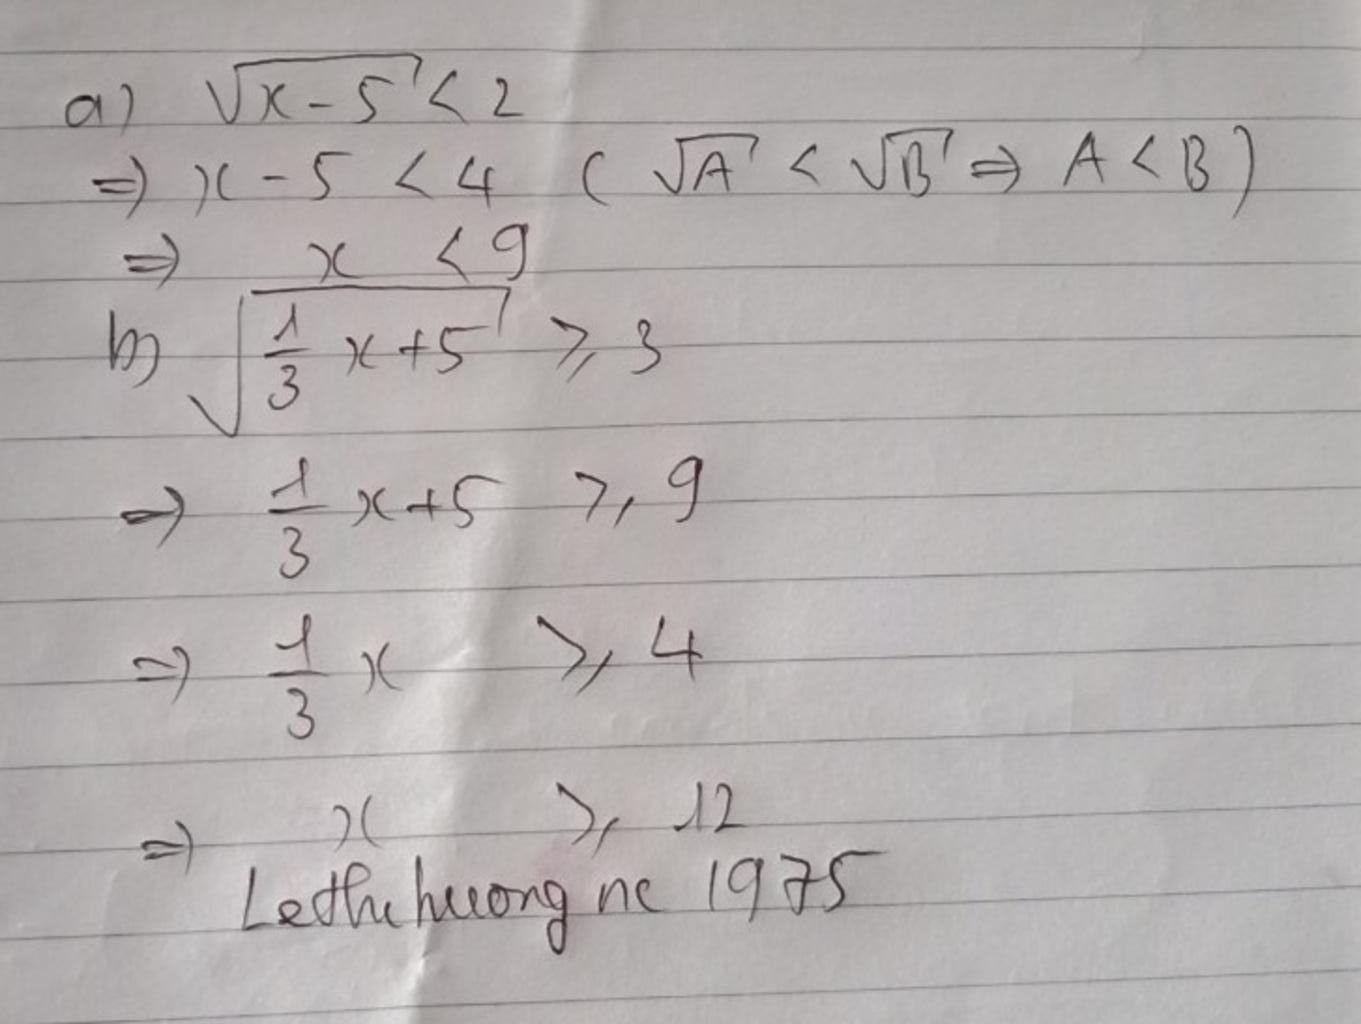 a) √x-5 < 2
⇒ x-5 < 4 ( √A < √B ⇒ A < B )
⇒ x < 9
b) √1/3 x+5 ⩾ 3
⇒ 1/3 x+5 ⩾ 9
⇒ 1/3 x ⩾ 4
⇒ x ⩾ 12
Lethuhuong nc 1975